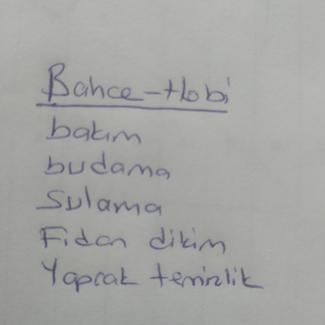 Bahce-Hobi
bakım
budama
Sulama
Fidan dikim
Yaprak temizlik